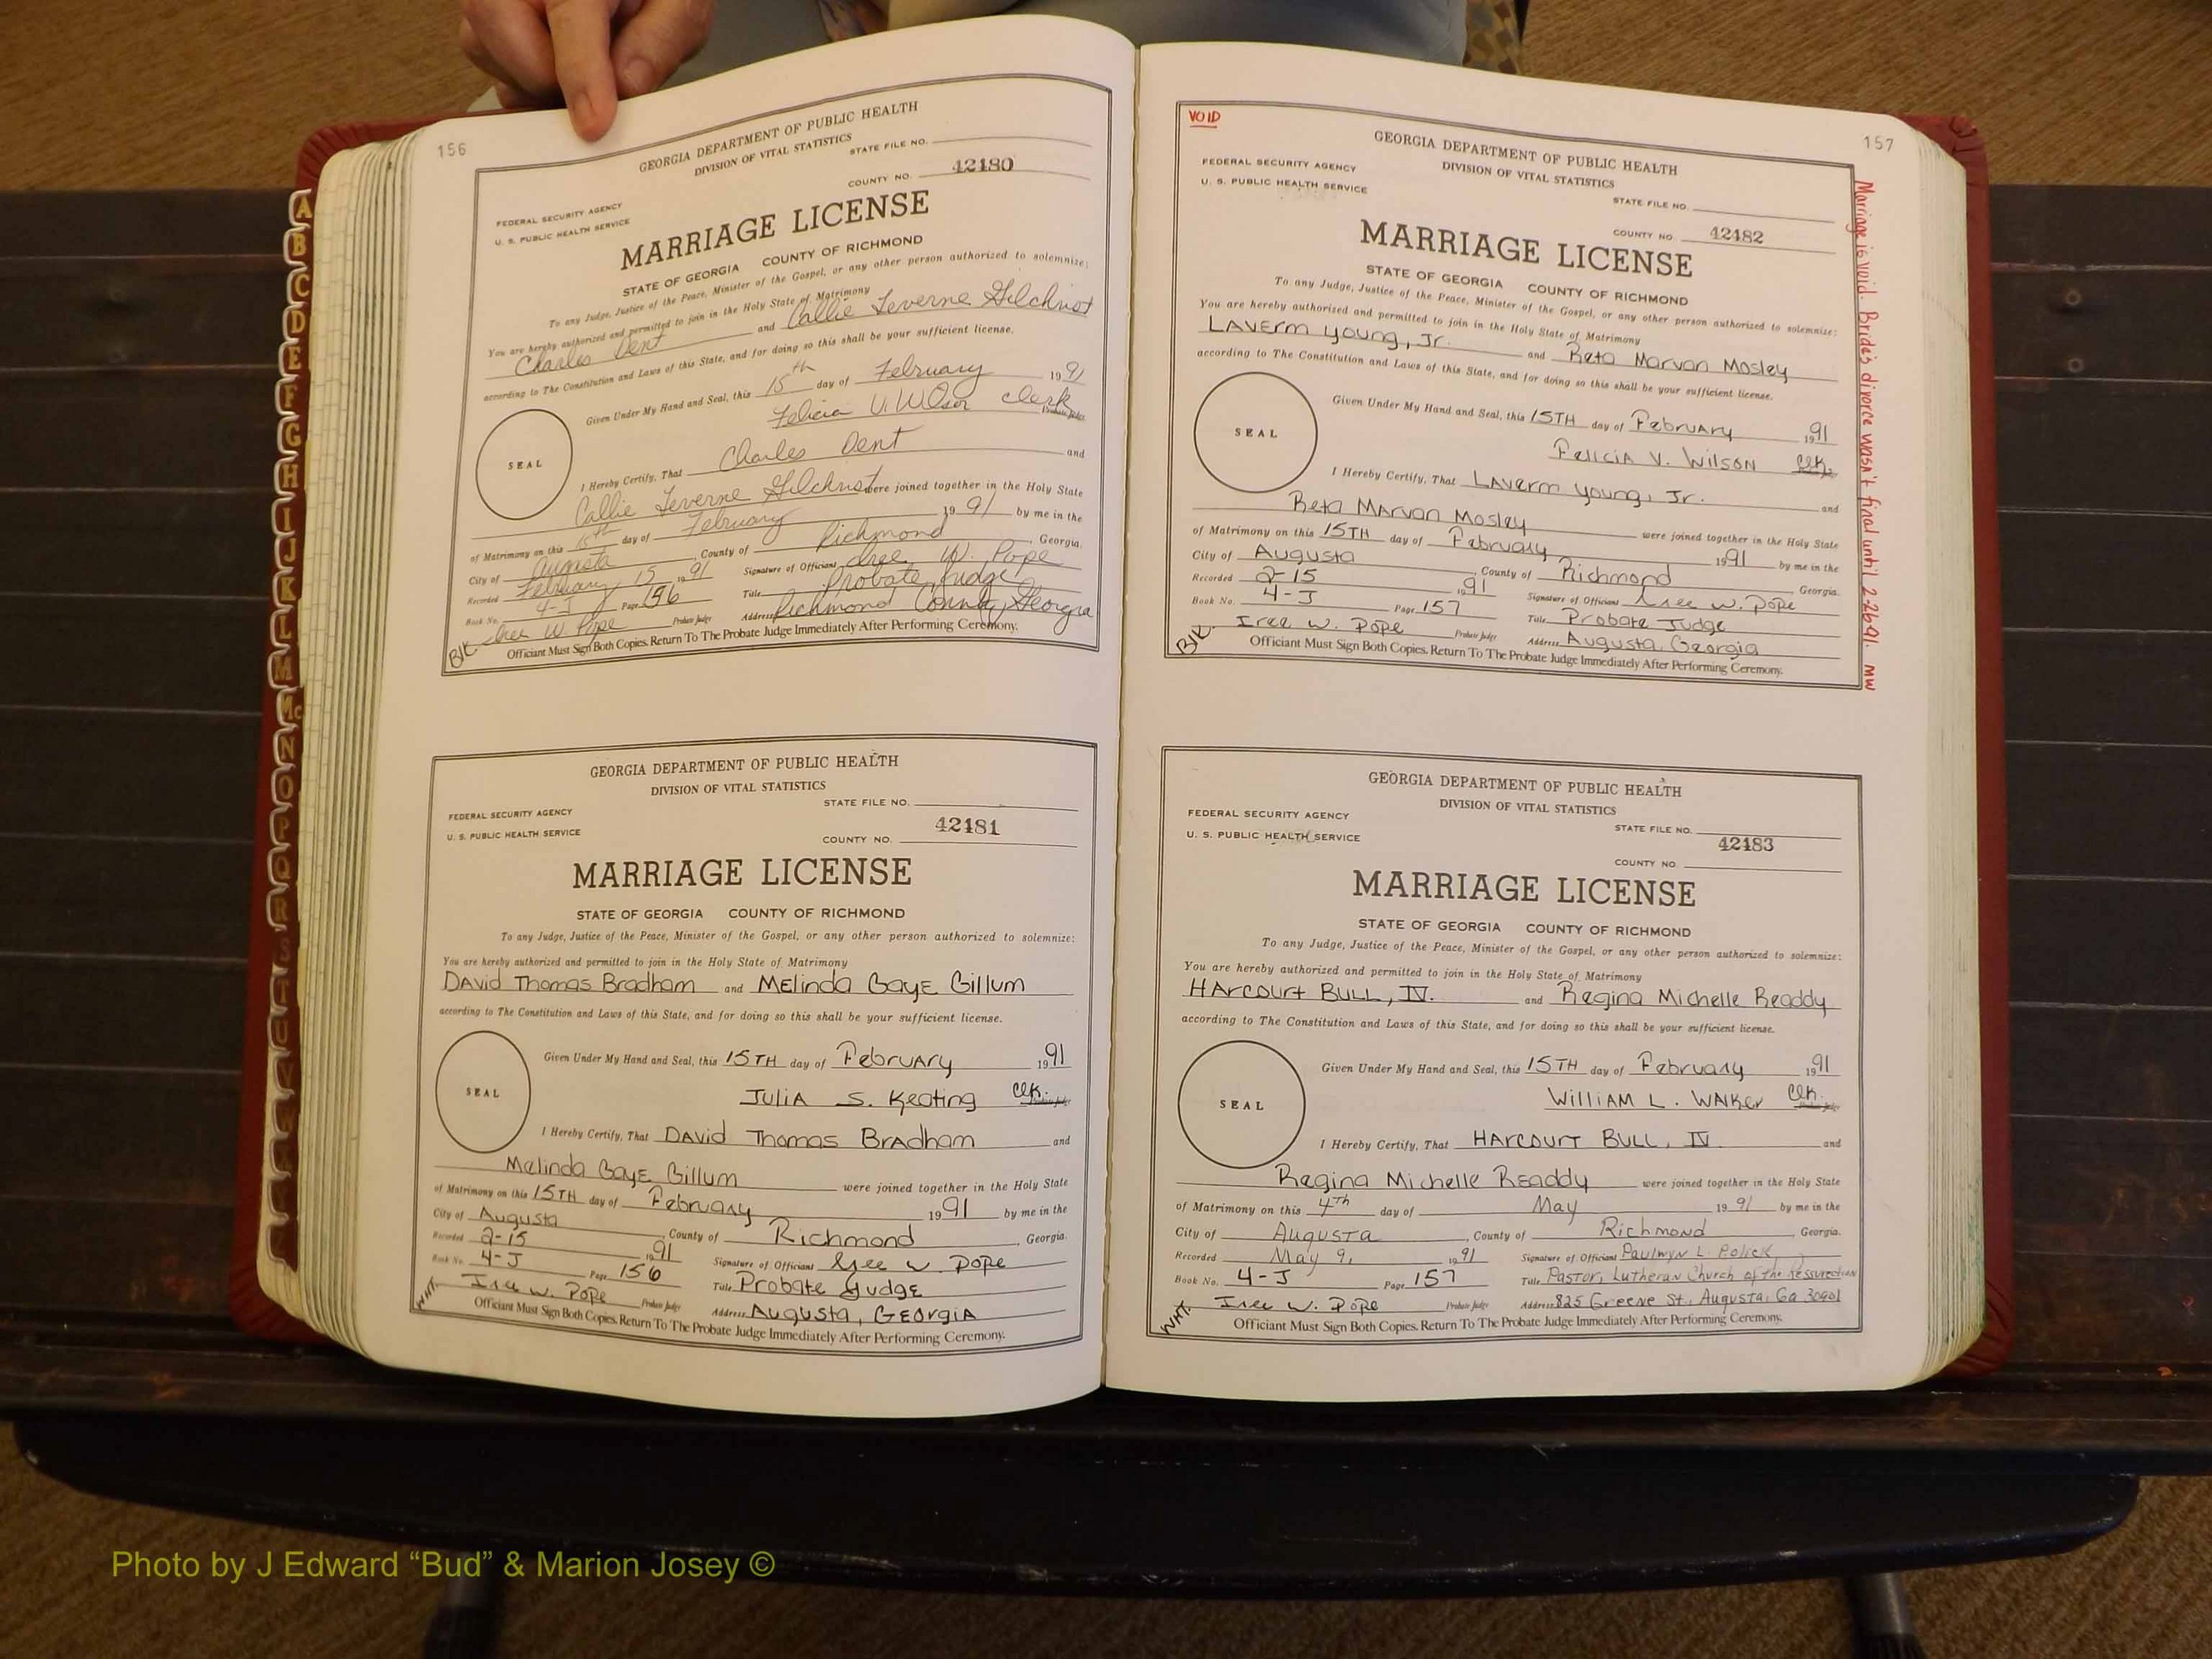 156
GEORGIA DEPARTMENT OF PUBLIC HEALTH
DIVISION OF VITAL STATISTICS
STATE FILE NO.
COUNTY NO. 42180
FEDERAL SECURITY AGENCY
U. S. PUBLIC HEALTH SERVICE
MARRIAGE LICENSE
STATE OF GEORGIA COUNTY OF RICHMOND
To any Judge, Justice of the Peace, Minister of the Gospel, or any other person authorized to solemnize:
You are hereby authorized and permitted to join in the Holy State of Matrimony
Charles Dent and Callie Leverne Gilchrist
according to The Constitution and Laws of this State, and for doing so this shall be your sufficient license.
Given Under My Hand and Seal, this 15th day of February 1991
Felicia V. Wilson Clerk
Probate Judge
SEAL
I Hereby Certify, That Charles Dent and
Callie Leverne Gilchrist were joined together in the Holy State
of Matrimony on this 15th day of February 1991 by me in the
City of Augusta, County of Richmond, Georgia.
Recorded February 15 1991 Signature of Officiant Iree W. Pope
Book No. 4-J Page 156 Title Probate Judge
Iree W Pope Probate Judge Address Richmond County, Georgia
Blk
Officiant Must Sign Both Copies. Return To The Probate Judge Immediately After Performing Ceremony.
GEORGIA DEPARTMENT OF PUBLIC HEALTH
DIVISION OF VITAL STATISTICS
STATE FILE NO.
FEDERAL SECURITY AGENCY
U. S. PUBLIC HEALTH SERVICE
COUNTY NO. 42181
MARRIAGE LICENSE
STATE OF GEORGIA COUNTY OF RICHMOND
To any Judge, Justice of the Peace, Minister of the Gospel, or any other person authorized to solemnize:
You are hereby authorized and permitted to join in the Holy State of Matrimony
David Thomas Bradham and Melinda Gaye Gillum
according to The Constitution and Laws of this State, and for doing so this shall be your sufficient license.
Given Under My Hand and Seal, this 15TH day of February 1991
Julia S. Keating Clk.
Probate Judge
SEAL
I Hereby Certify, That David Thomas Bradham and
Melinda Gaye Gillum were joined together in the Holy State
of Matrimony on this 15TH day of February 1991 by me in the
City of Augusta, County of Richmond, Georgia.
Recorded 2-15 1991 Signature of Officiant Iree W. Pope
Book No. 4-J Page 156 Title Probate Judge
Iree W. Pope Probate Judge Address Augusta, Georgia
Wht.
Officiant Must Sign Both Copies. Return To The Probate Judge Immediately After Performing Ceremony.
157
VOID
GEORGIA DEPARTMENT OF PUBLIC HEALTH
DIVISION OF VITAL STATISTICS
FEDERAL SECURITY AGENCY
U. S. PUBLIC HEALTH SERVICE
STATE FILE NO.
COUNTY NO. 42182
MARRIAGE LICENSE
STATE OF GEORGIA COUNTY OF RICHMOND
To any Judge, Justice of the Peace, Minister of the Gospel, or any other person authorized to solemnize:
You are hereby authorized and permitted to join in the Holy State of Matrimony
Laverm Young, Jr. and Reta Marvan Mosley
according to The Constitution and Laws of this State, and for doing so this shall be your sufficient license.
Given Under My Hand and Seal, this 15TH day of February 1991
Felicia V. Wilson Clk.
SEAL
I Hereby Certify, That Laverm Young, Jr. and
Reta Marvan Mosley were joined together in the Holy State
of Matrimony on this 15TH day of February 1991 by me in the
City of Augusta, County of Richmond Georgia.
Recorded 2-15 1991 Signature of Officiant Iree W. Pope
Book No. 4-J Page 157 Title Probate Judge
Iree W. Pope Probate Judge Address Augusta, Georgia
Blk.
Officiant Must Sign Both Copies. Return To The Probate Judge Immediately After Performing Ceremony.
Marriage is void. Bride's divorce wasn't final until 2-26-91. MW
GEORGIA DEPARTMENT OF PUBLIC HEALTH
DIVISION OF VITAL STATISTICS
FEDERAL SECURITY AGENCY
U. S. PUBLIC HEALTH SERVICE
STATE FILE NO.
COUNTY NO. 42183
MARRIAGE LICENSE
STATE OF GEORGIA COUNTY OF RICHMOND
To any Judge, Justice of the Peace, Minister of the Gospel, or any other person authorized to solemnize:
You are hereby authorized and permitted to join in the Holy State of Matrimony
Harcourt Bull, IV. and Regina Michelle Readdy
according to The Constitution and Laws of this State, and for doing so this shall be your sufficient license.
Given Under My Hand and Seal, this 15TH day of February 1991
William L. Walker Clk.
Probate Judge
SEAL
I Hereby Certify, That Harcourt Bull, IV and
Regina Michelle Readdy were joined together in the Holy State
of Matrimony on this 4th day of May 1991 by me in the
City of Augusta, County of Richmond, Georgia.
Recorded May 9, 1991 Signature of Officiant Paulwyn L. Polick
Book No. 4-J Page 157 Title Pastor, Lutheran Church of the Ressurection
Iree W. Pope Probate Judge Address 825 Greene St., Augusta, Ga 30901
Wht.
Officiant Must Sign Both Copies. Return To The Probate Judge Immediately After Performing Ceremony.
A
B
C
D
E
F
G
H
I
J
K
L
M
Mc
N
O
P
Q
R
S
T
U
V
Photo by J Edward “Bud” & Marion Josey ©